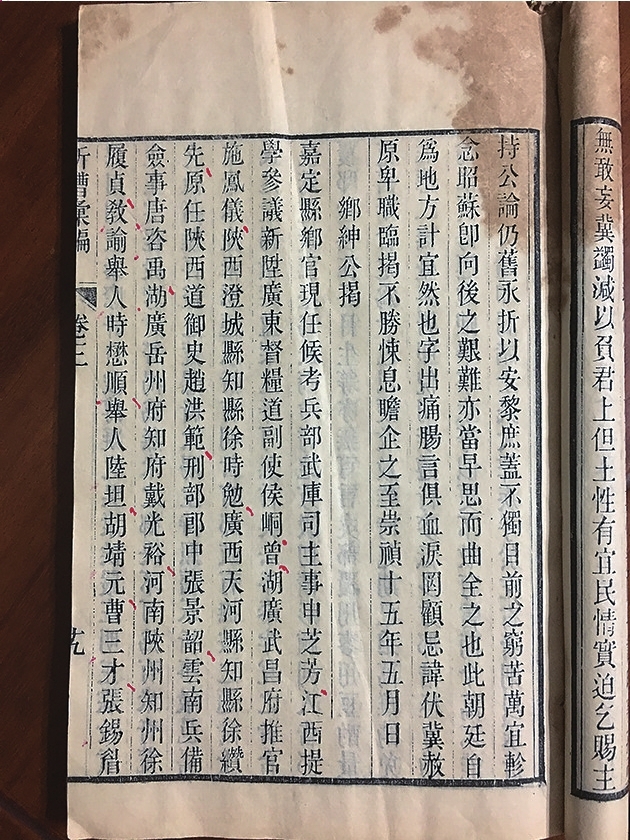 無敢妄冀蠲減以負君上但土性有宜民情實迫乞賜主
持公論仍舊永折以安黎庶蓋不獨目前之窮苦萬宜軫
念昭蘇卽向後之艱難亦當早思而曲全之也此朝廷自
爲地方計宜然也字出痛腸言俱血淚罔顧忌諱伏冀赦
原卑職臨揭不勝悚息瞻企之至崇禎十五年五月日
鄉紳公揭
嘉定縣鄉官現任候考兵部武庫司主事申芝芳江西提
學參議新陞廣東督糧道副使侯峒曾湖廣武昌府推官
施鳳儀陝西澄城縣知縣徐時勉廣西天河縣知縣徐纘
先原任陝西道御史趙洪範刑部郎中張景韶雲南兵備
僉事唐咨禹湖廣岳州府知府戴光裕河南陝州知州徐
履貞敎諭舉人時懋順舉人陸坦胡靖元曹三才張錫眉
折漕彙編